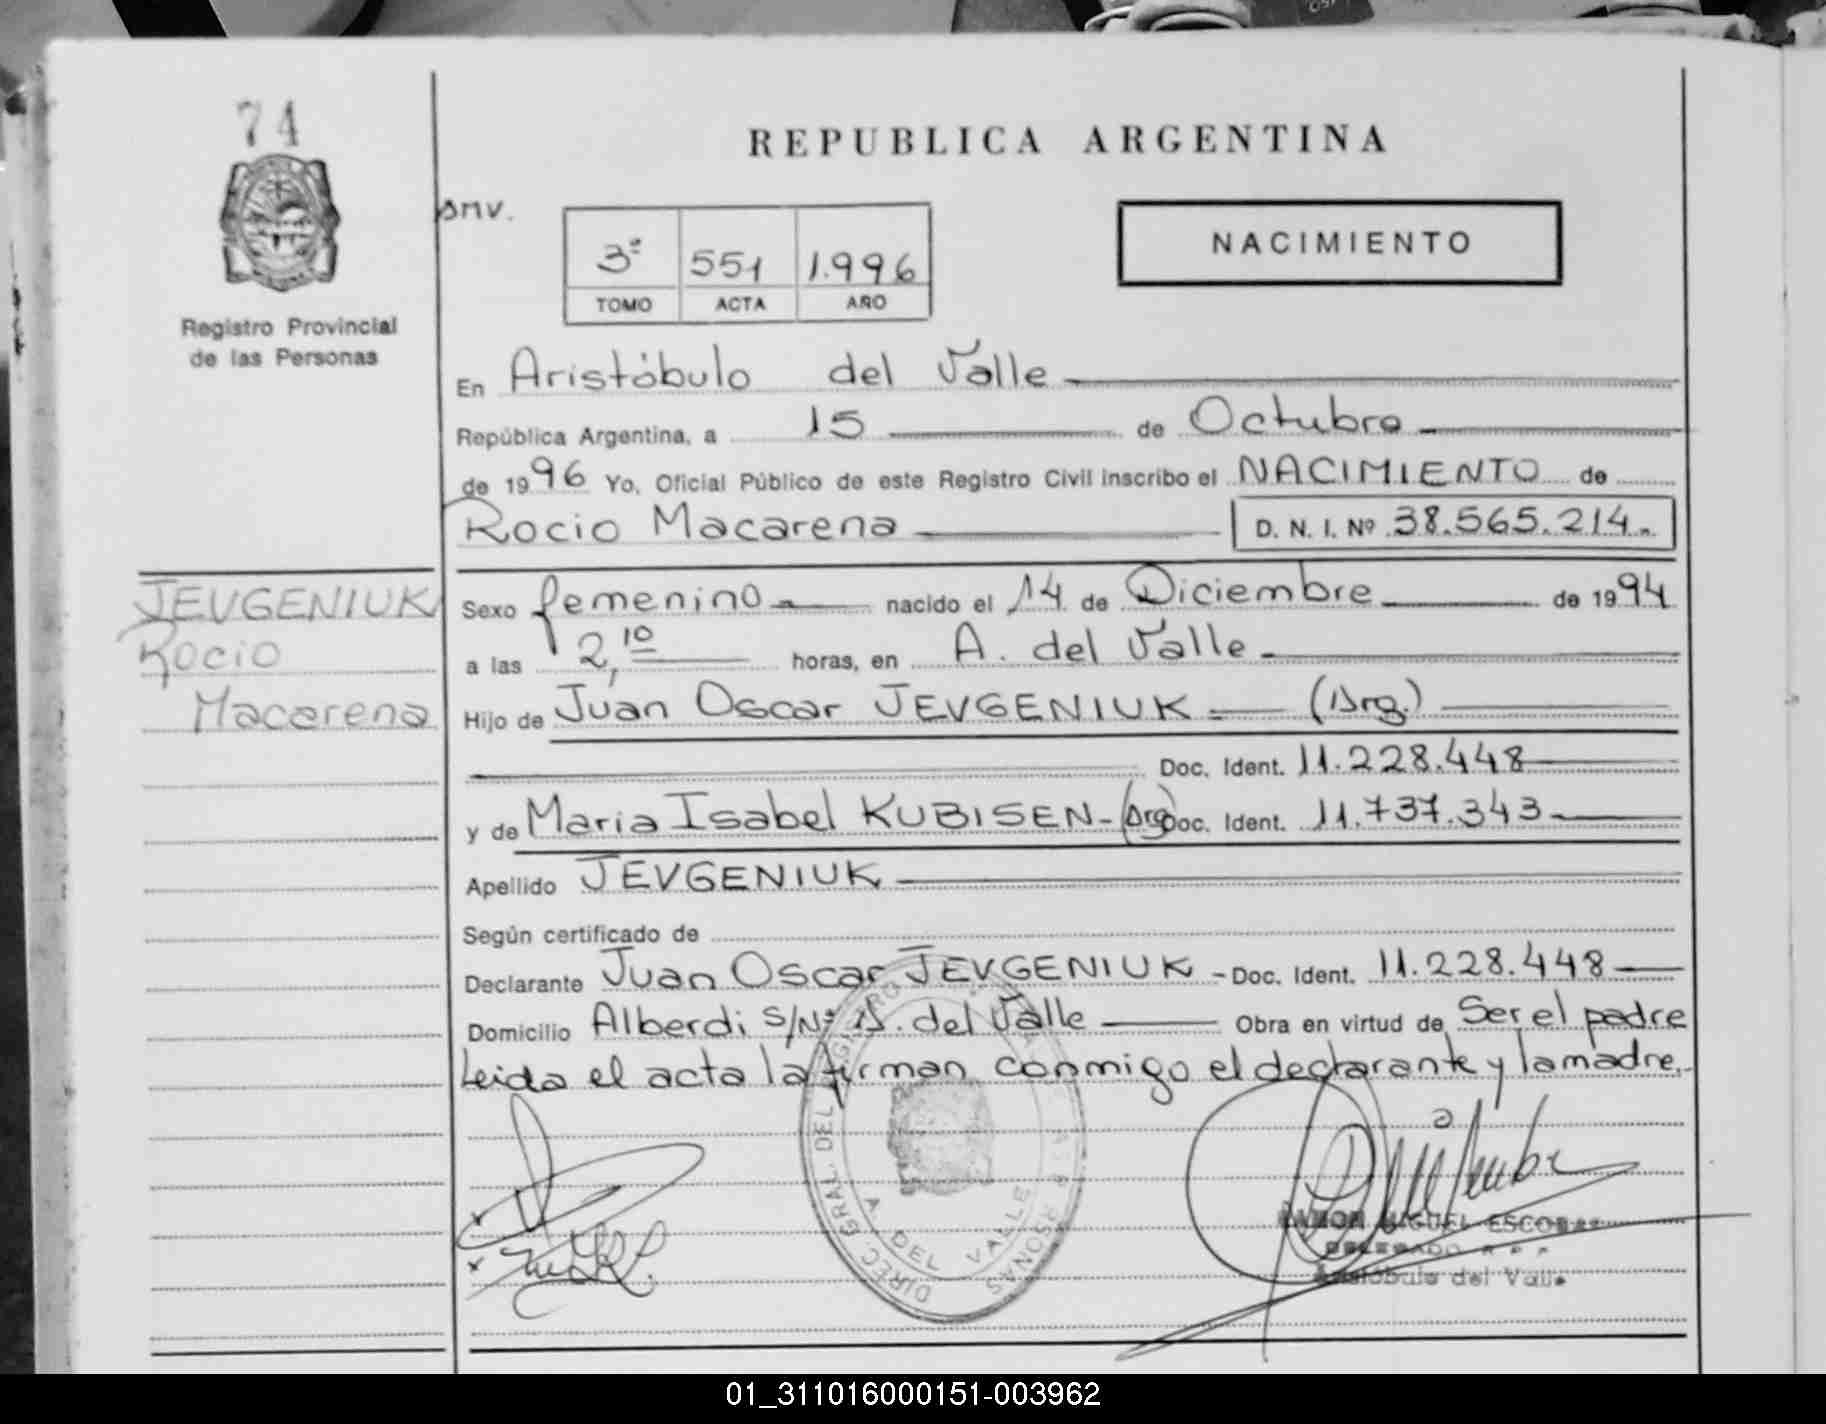 74
REPUBLICA ARGENTINA
NACIMIENTO
3º 551 1.996
TOMO ACTA AÑO
Registro Provincial
de las Personas
En Aristóbulo del Valle
República Argentina, a 15 de Octubre
de 1996 Yo, Oficial Público de este Registro Civil inscribo el NACIMIENTO de
Rocio Macarena D. N. I. Nº 38.565.214.-
JEVGENIUK
Rocio
Macarena
Sexo femenino nacido el 14 de Diciembre de 1994
a las 2,10 horas, en A. del Valle
Hijo de Juan Oscar JEVGENIUK (Arg.)
Doc. Ident. 11.228.448
y de Maria Isabel KUBISEN - (Arg) Doc. Ident. 11.737.343
Apellido JEVGENIUK
Según certificado de
Declarante Juan Oscar JEVGENIUK - Doc. Ident. 11.228.448
Domicilio Alberdi S/Nº A. del Valle Obra en virtud de Ser el padre
Leida el acta la firman conmigo el declarante y la madre.-
DIREC. GRAL. DEL REGISTRO
A. DEL VALLE
MIGUEL ESCOBAR
DELEGADO
Aristóbulo del Valle
01_311016000151-003962